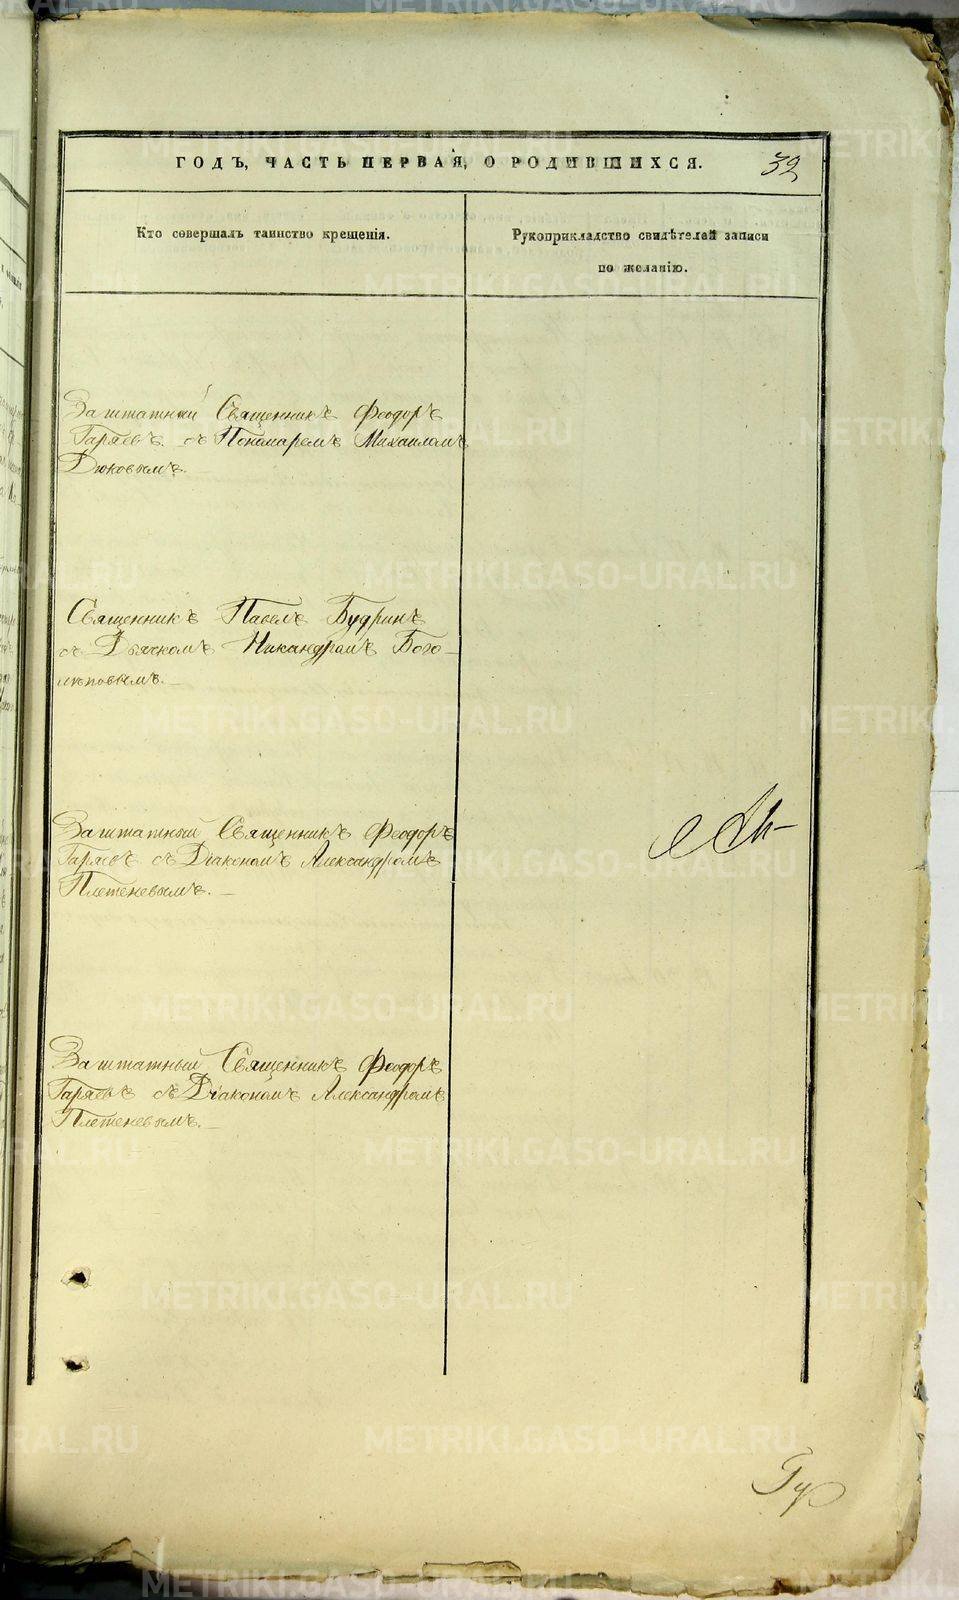 ГОДЪ, ЧАСТЬ ПЕРВАЯ, О РОДИВШИХСЯ.
32
Кто совершалъ таинство крещенія.
Рукоприкладство свидѣтелей записи
по желанію.
Заштатный Священникъ Феодоръ
Гаряевъ съ Пономаремъ Михаиломъ
Дюковымъ.
Священникъ Павелъ Будринъ
съ Дьячкомъ Никандромъ Бого-
лѣповымъ.
Заштатный Священникъ Феодоръ
Гаряевъ съ Діакономъ Александромъ
Плетеневымъ.
Заштатный Священникъ Феодоръ
Гаряевъ съ Діакономъ Александромъ
Плетеневымъ.
METRIKI.GASO-URAL.RU